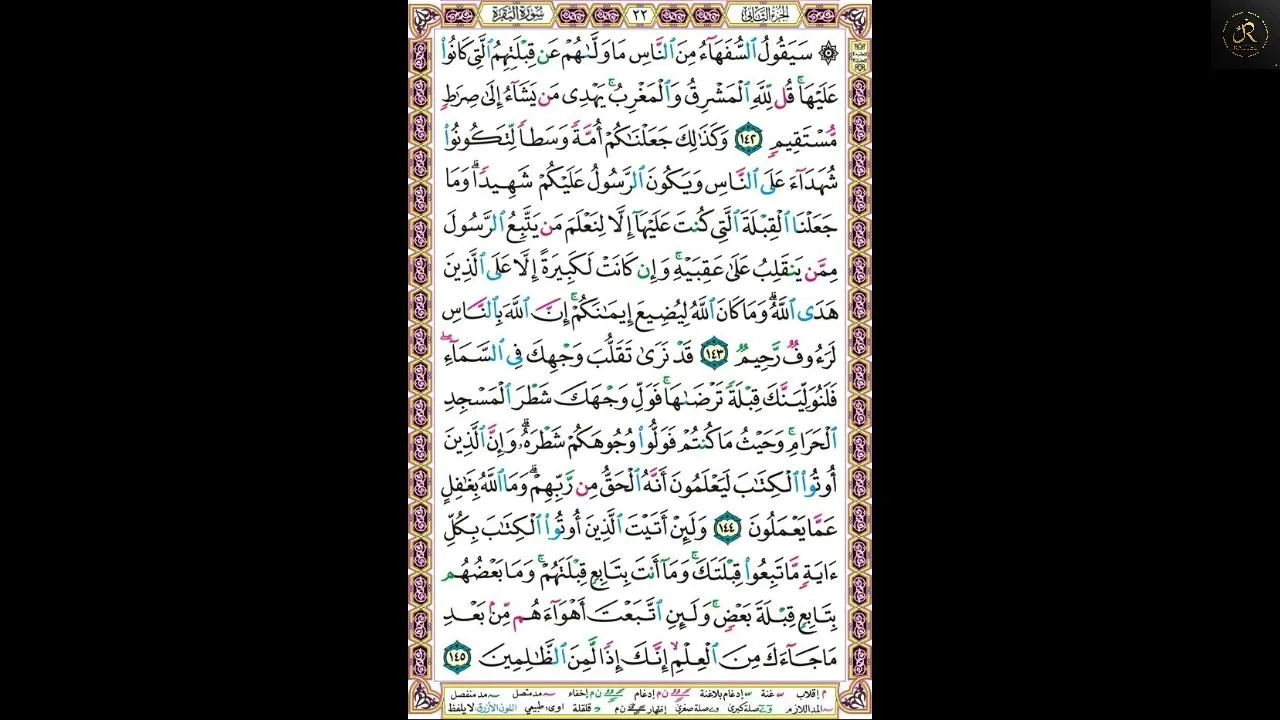 الجزء الثاني ٢٢ سورة البقرة
۞ سَيَقُولُ ٱلسُّفَهَآءُ مِنَ ٱلنَّاسِ مَا وَلَّىٰهُمْ عَن قِبْلَتِهِمُ ٱلَّتِى كَانُوا۟
عَلَيْهَا ۚ قُل لِّلَّهِ ٱلْمَشْرِقُ وَٱلْمَغْرِبُ ۚ يَهْدِى مَن يَشَآءُ إِلَىٰ صِرَٰطٍ
مُّسْتَقِيمٍ ١٤٢ وَكَذَٰلِكَ جَعَلْنَٰكُمْ أُمَّةً وَسَطًا لِّتَكُونُوا۟
شُهَدَآءَ عَلَى ٱلنَّاسِ وَيَكُونَ ٱلرَّسُولُ عَلَيْكُمْ شَهِيدًا ۗ وَمَا
جَعَلْنَا ٱلْقِبْلَةَ ٱلَّتِى كُنتَ عَلَيْهَآ إِلَّا لِنَعْلَمَ مَن يَتَّبِعُ ٱلرَّسُولَ
مِمَّن يَنقَلِبُ عَلَىٰ عَقِبَيْهِ ۚ وَإِن كَانَتْ لَكَبِيرَةً إِلَّا عَلَى ٱلَّذِينَ
هَدَى ٱللَّهُ ۗ وَمَا كَانَ ٱللَّهُ لِيُضِيعَ إِيمَٰنَكُمْ ۚ إِنَّ ٱللَّهَ بِٱلنَّاسِ
لَرَءُوفٌ رَّحِيمٌ ١٤٣ قَدْ نَرَىٰ تَقَلُّبَ وَجْهِكَ فِى ٱلسَّمَآءِ ۖ
فَلَنُوَلِّيَنَّكَ قِبْلَةً تَرْضَىٰهَا ۚ فَوَلِّ وَجْهَكَ شَطْرَ ٱلْمَسْجِدِ
ٱلْحَرَامِ ۚ وَحَيْثُ مَا كُنتُمْ فَوَلُّوا۟ وُجُوهَكُمْ شَطْرَهُۥ ۗ وَإِنَّ ٱلَّذِينَ
أُوتُوا۟ ٱلْكِتَٰبَ لَيَعْلَمُونَ أَنَّهُ ٱلْحَقُّ مِن رَّبِّهِمْ ۗ وَمَا ٱللَّهُ بِغَٰفِلٍ
عَمَّا يَعْمَلُونَ ١٤٤ وَلَئِنْ أَتَيْتَ ٱلَّذِينَ أُوتُوا۟ ٱلْكِتَٰبَ بِكُلِّ
ءَايَةٍ مَّا تَبِعُوا۟ قِبْلَتَكَ ۚ وَمَآ أَنتَ بِتَابِعٍ قِبْلَتَهُمْ ۚ وَمَا بَعْضُهُم
بِتَابِعٍ قِبْلَةَ بَعْضٍ ۚ وَلَئِنِ ٱتَّبَعْتَ أَهْوَآءَهُم مِّنۢ بَعْدِ
مَا جَآءَكَ مِنَ ٱلْعِلْمِ ۙ إِنَّكَ إِذًا لَّمِنَ ٱلظَّٰلِمِينَ ١٤٥
م إقلاب غنة إدغام بلاغنة ن م إدغام ن م إخفاء مد متصل مد منفصل
المد اللازم صلة كبرى صلة صغرى إظهار ن م قلقلة اوى، طبيعي اللون الأزرق لا يلفظ